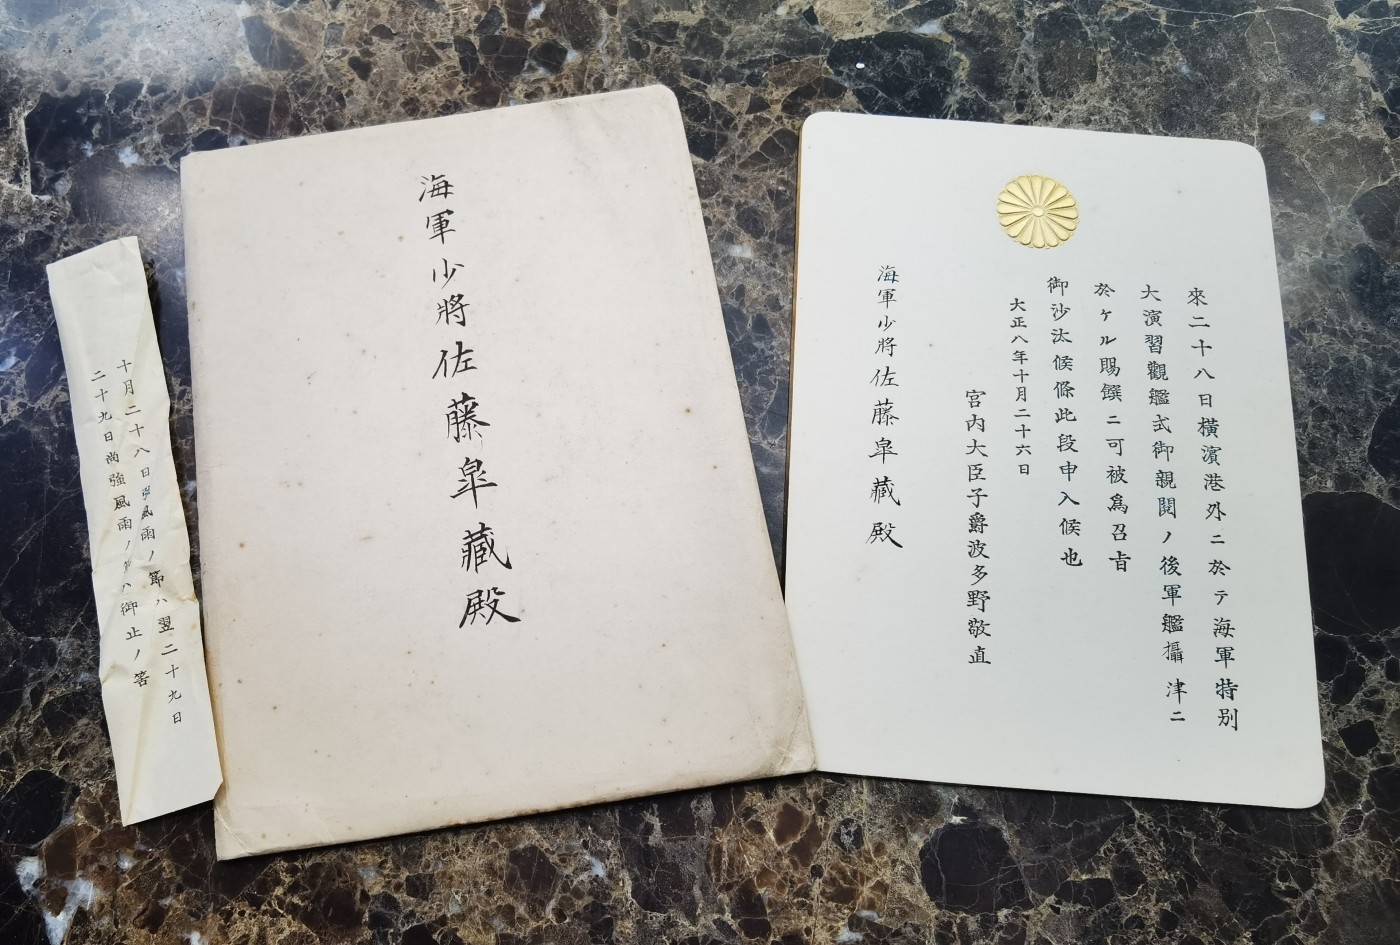 來二十八日橫濱港外ニ於テ海軍特別
大演習觀艦式御親閱ノ後軍艦攝津ニ
於ケル賜饌ニ可被爲召旨
御沙汰候條此段申入候也
大正八年十月二十六日
宮内大臣子爵波多野敬直
海軍少將佐藤皐藏殿
海軍少將佐藤皐藏殿
十月二十八日強風雨ノ節ハ翌二十九日
二十九日尚強風雨ノ節ハ御止ノ筈